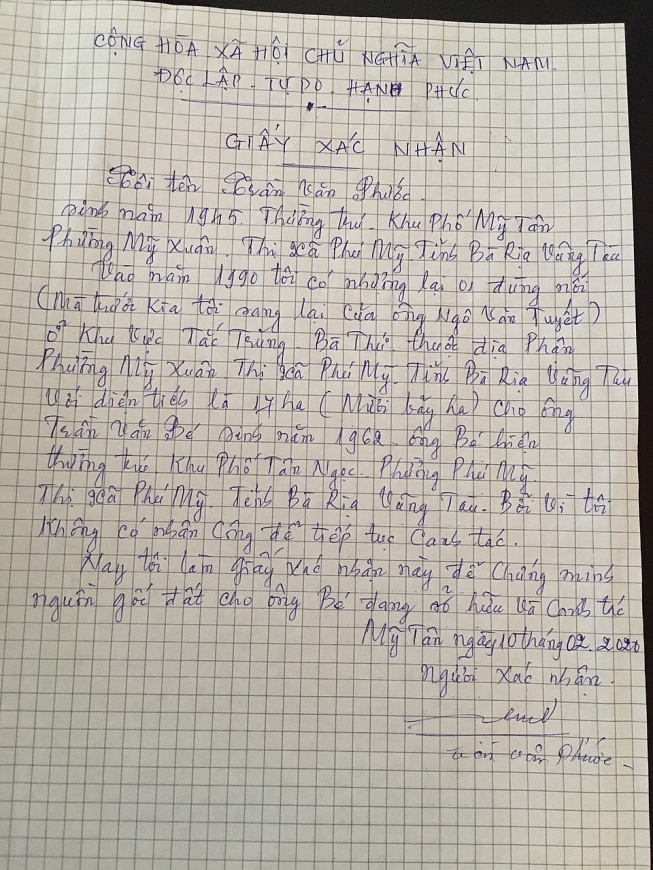 CỘNG HÒA XÃ HỘI CHỦ NGHĨA VIỆT NAM.
ĐỘC LẬP - TỰ DO - HẠNH PHÚC.
GIẤY XÁC NHẬN
Tôi tên Trần Văn Phước.
Sinh năm 1945. Thường trú. Khu Phố Mỹ Tân
Phường Mỹ Xuân. Thị xã Phú Mỹ. Tỉnh Bà Rịa Vũng Tàu
Vào năm 1990 tôi có nhượng lại 01 đùng nối
(Mà trước kia tôi sang lại của ông Ngô Văn Tuyết)
ở Khu Vực Tắc Trung - Bà Thứ. thuộc địa Phận
Phường Mỹ Xuân Thị xã Phú Mỹ. Tỉnh Bà Rịa Vũng Tàu
Với diện tích là 17 ha (Mười bảy ha) cho ông
Trần Văn Bé Sinh năm 1962. ông Bé hiện
thường trú. Khu Phố Tân Ngọc. Phường Phú Mỹ.
Thị xã Phú Mỹ. Tỉnh Bà Rịa Vũng Tàu. Bởi vì tôi
không có nhân công để tiếp tục Canh tác.
Nay tôi làm giấy xác nhận này để Chứng minh
nguồn gốc đất cho ông Bé đang sở hữu và Canh tác
Mỹ Tân ngày 10 tháng 02. 2020
người xác nhận.
Trần văn Phước